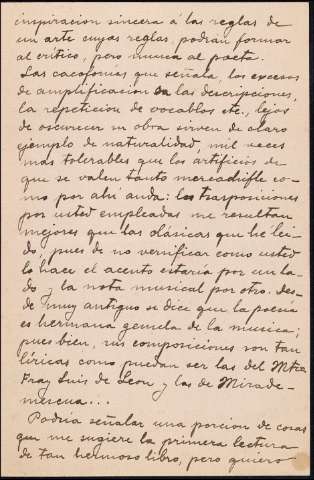 inspiracion sincera á las reglas de
un arte cuyas reglas, podrán formar
al crítico, pero nunca al poeta.
Las cacofonías que señala, los excesos
de amplificación en las descripciones,
la repetición de vocablos etc., lejos
de oscurecer su obra sirven de claro
ejemplo de naturalidad, mil veces
mas tolerables que los artificios de
que se valen tanto mercachifle co-
mo por ahí anda: las trasposiciones
por usted empleadas me resultan
mejores que las clásicas que he lei-
do, pues de no versificar como usted
lo hace el acento estaría por un la-
do y la nota musical por otro. Des-
de muy antiguo se dice que la poesía
es hermana gemela de la musica;
pues bien, sus composiciones son tan
líricas como puedan ser las del Mtro
Fray Luis de Leon y las de Mirade-
mescua...
Podría señalar una porcion de cosas
que me sugiere la primera lectura
de tan hermoso libro, pero quiero